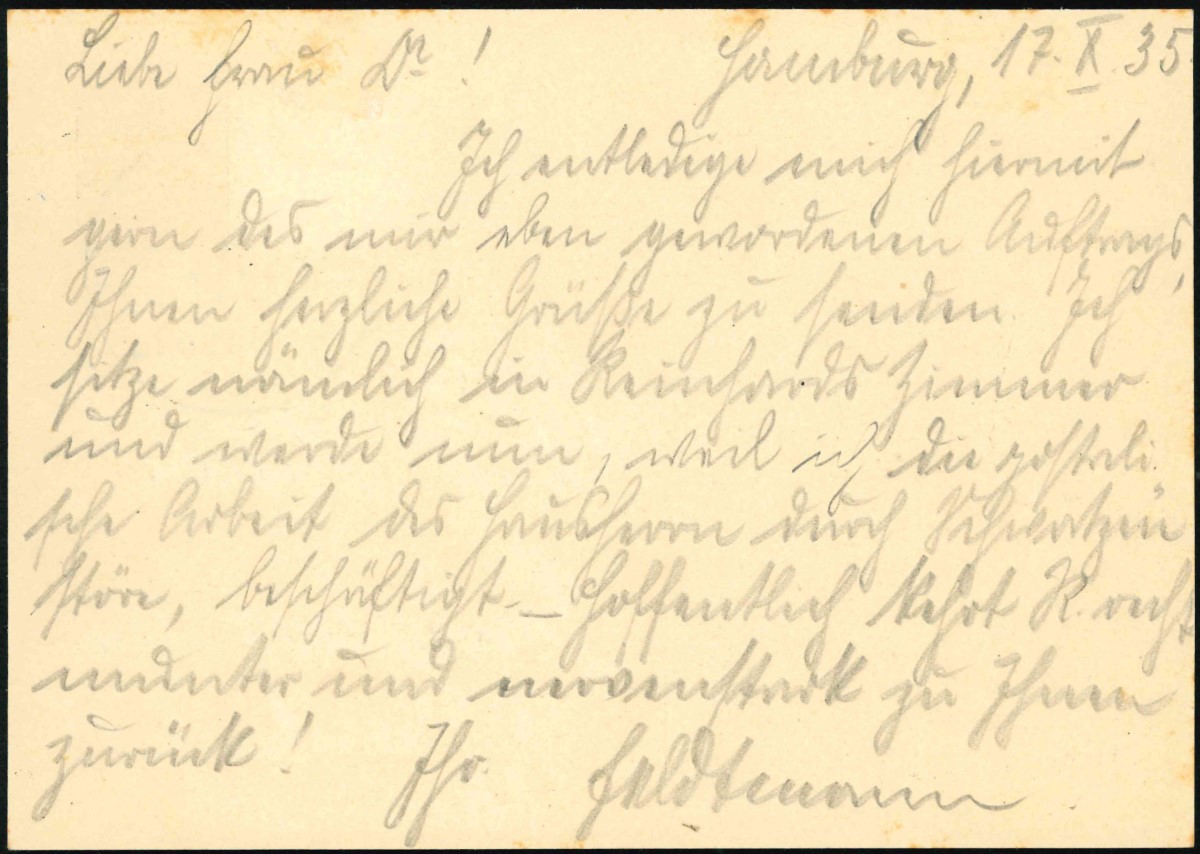 Liebe Frau Dr! Hamburg, 17. X. 35.
Ich entledige mich hiermit
gern des mir eben gewordenen Auftrags,
Ihnen herzliche Grüße zu senden. Ich
sitze nämlich in Reinhards Zimmer
und werde nun, weil ich die postali
sche Arbeit des Hausherrn durch Schwatzen
störe, beschäftigt – Hoffentlich kehrt R. recht
munter und nervenstark zu Ihnen
zurück! Ihr Feldtmann